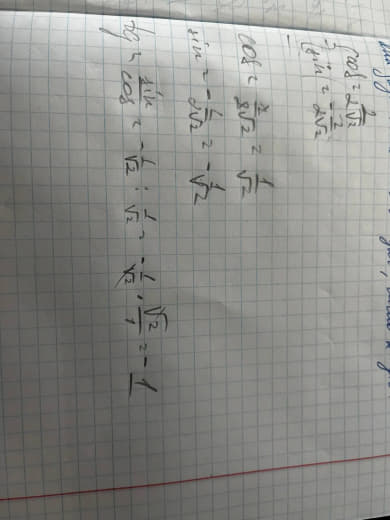 {cos = 2/2√2
{sin = -2/2√2
cos = 2/2√2 = 1/√2
sin = -2/2√2 = -1/√2
tg = sin/cos = -1/√2 : 1/√2 = -1/√2 · √2/1 = -1